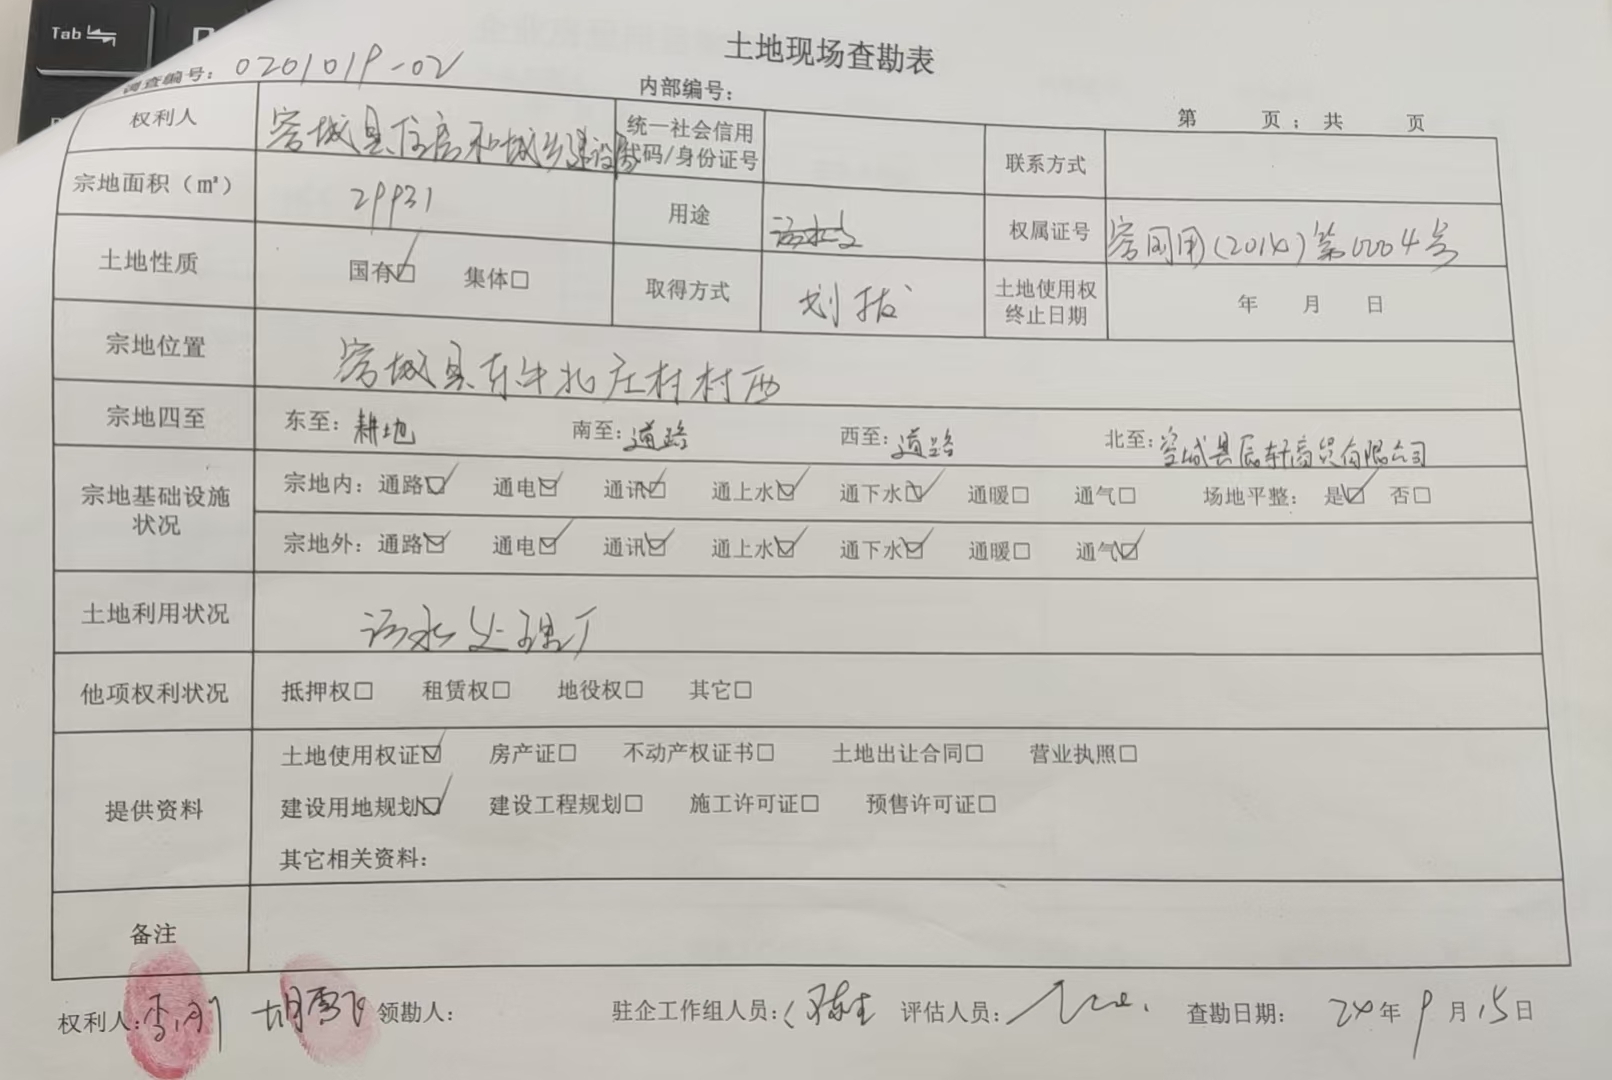 Tab
土地现场查勘表
调查编号：0201019-02
内部编号：
第 页；共 页
权利人 容城县住房和城乡建设局 统一社会信用代码/身份证号 联系方式
宗地面积（㎡） 29931 用途 权属证号 容国用(2014)第00004号
土地性质 国有☑ 集体☐ 取得方式 划拨 土地使用权终止日期 年 月 日
宗地位置 容城县东牛北庄村村西
宗地四至 东至：耕地 南至：道路 西至：道路 北至：容城县辰轩商贸有限公司
宗地基础设施状况 宗地内：通路☑ 通电☑ 通讯☑ 通上水☑ 通下水☑ 通暖☐ 通气☐ 场地平整： 是☑ 否☐
宗地外：通路☑ 通电☑ 通讯☑ 通上水☑ 通下水☑ 通暖☐ 通气☑
土地利用状况 污水处理厂
他项权利状况 抵押权☐ 租赁权☐ 地役权☐ 其它☐
提供资料 土地使用权证☑ 房产证☐ 不动产权证书☐ 土地出让合同☐ 营业执照☐
建设用地规划☑ 建设工程规划☐ 施工许可证☐ 预售许可证☐
其它相关资料：
备注
权利人： 领勘人： 驻企工作组人员： 评估人员： 查勘日期： 24年9月15日